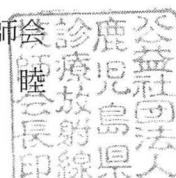 師会
睦
公益社団法人
鹿児島県
診療放射線
技師会会長印